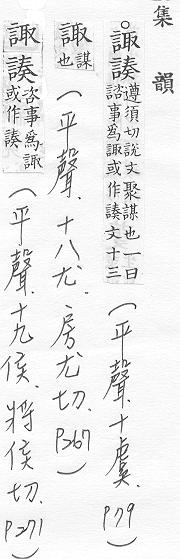 集韻
○諏諑遵須切說文聚謀也一曰
諮事為諏或作諑文十三
(平聲.十虞.P79)
諏謀也(平聲.十八尤.房尤切.P267)
諏諑咨事為諏或作諑(平聲.十九侯.將侯切.P271)